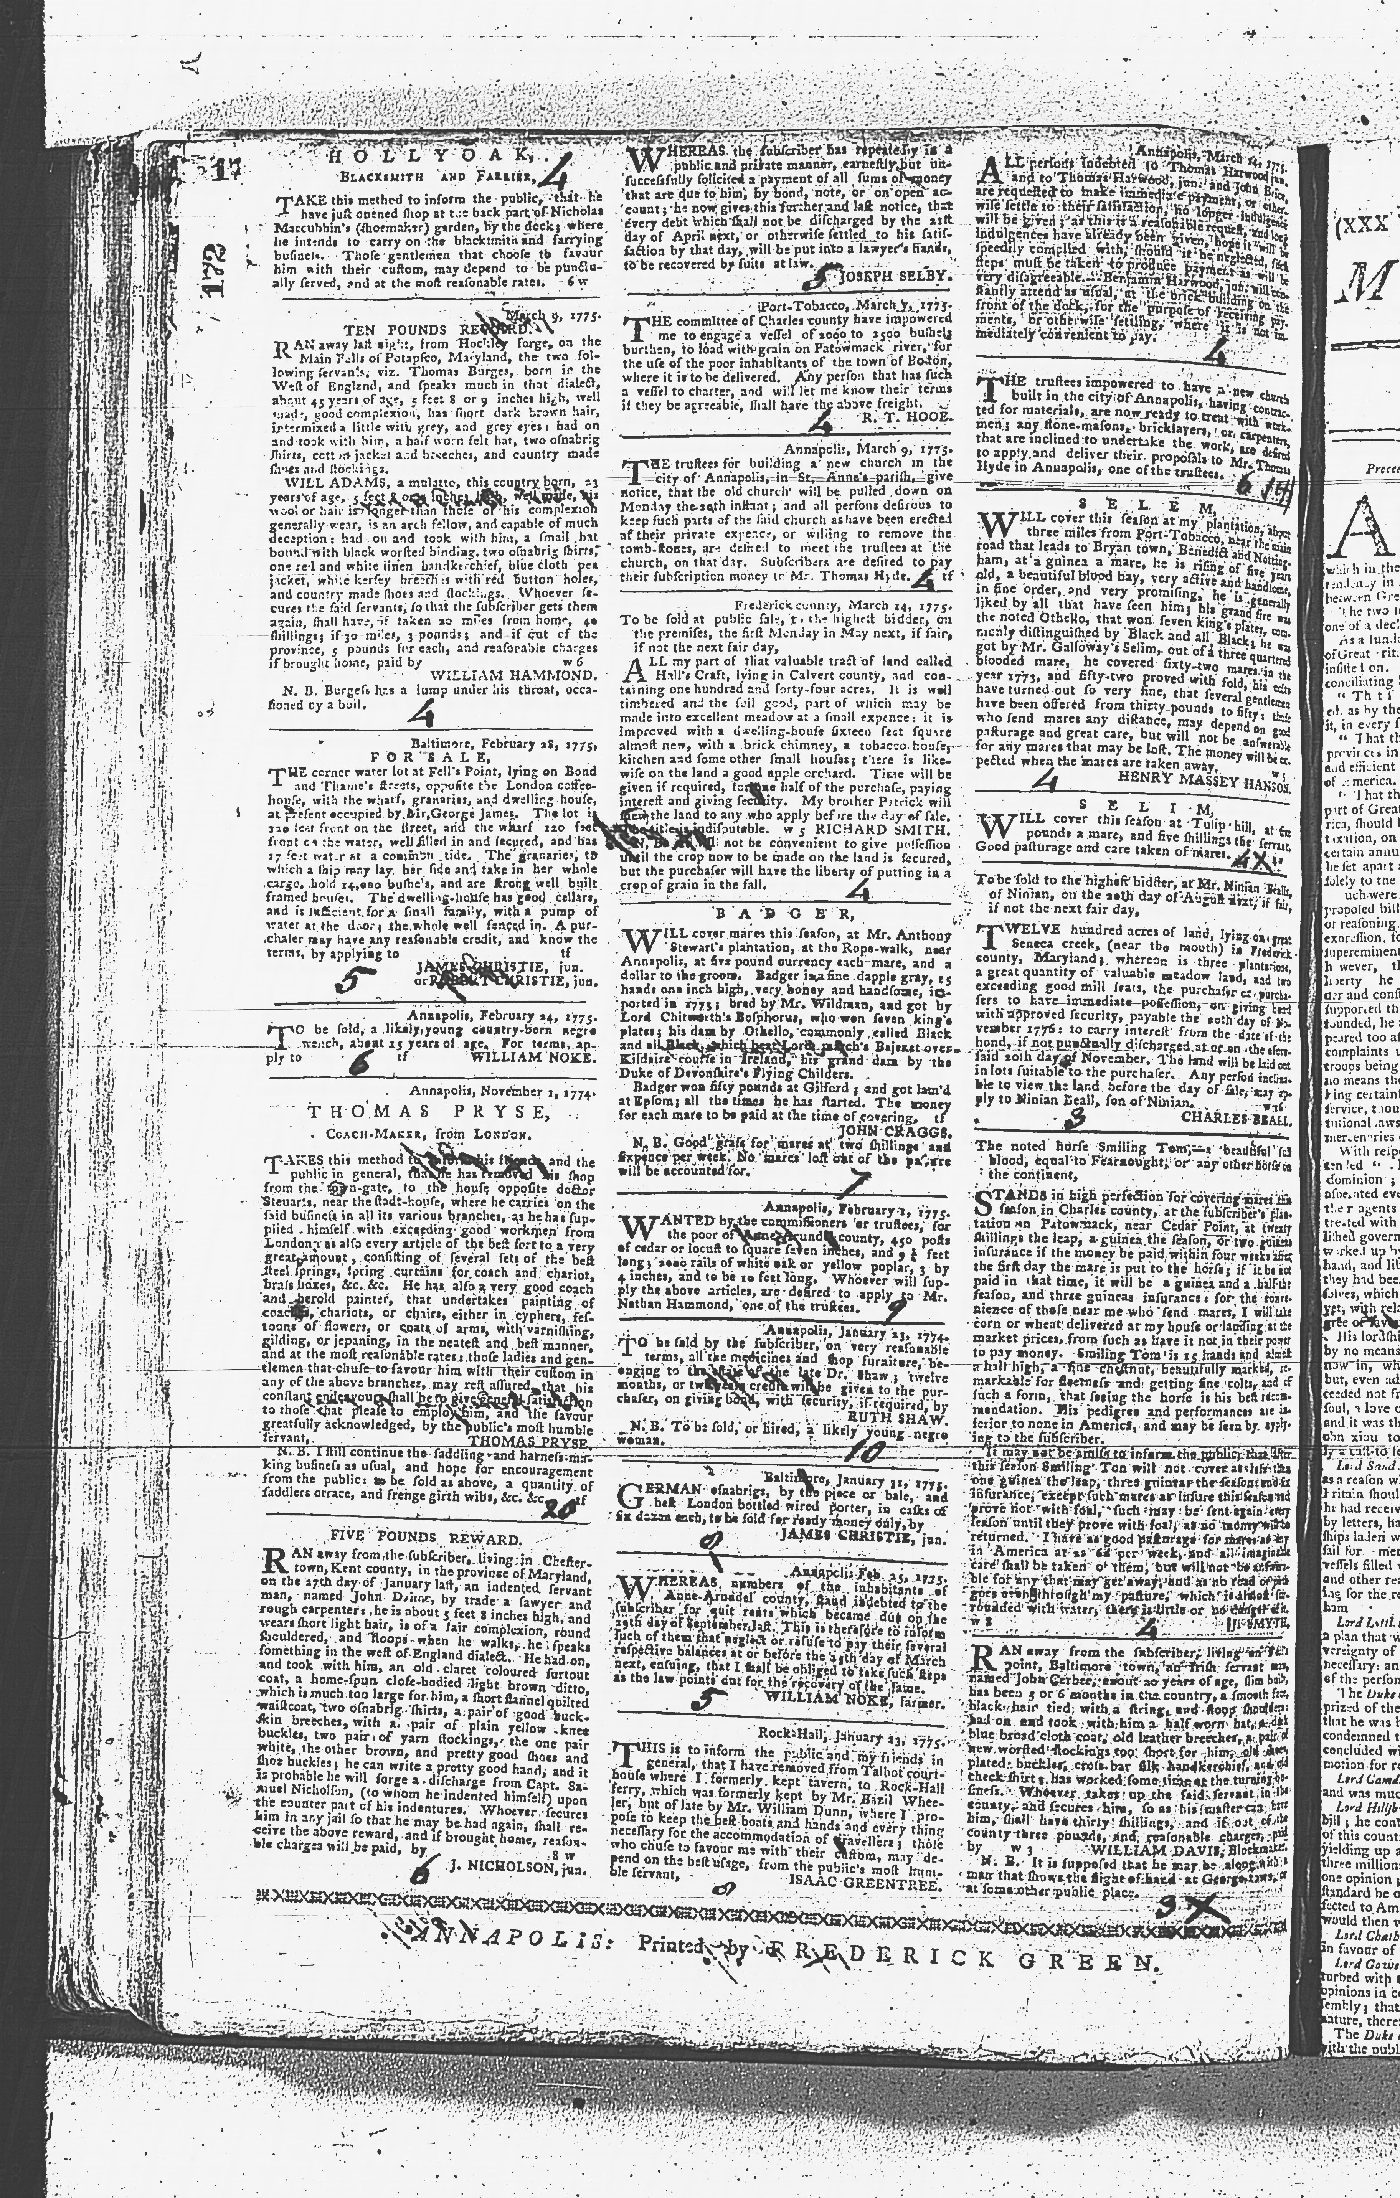 17
172
HOLLYOAK,
BLACKSMITH AND FARRIER,
4
TAKE this method to inform the public, that he
have just opened shop at the back part of Nicholas
Maccubbin's (shoemaker) garden, by the dock; where
he intends to carry on the blacksmith and farrying
business. Those gentlemen that choose to favour
him with their custom, may depend to be punctu-
ally served, and at the most reasonable rates. 6 w
March 9, 1775.
TEN POUNDS REWARD.
RAN away last night, from Hockley forge, on the
Main Falls of Patapsco, Maryland, the two fol-
lowing servants, viz. Thomas Burges, born in the
West of England, and speaks much in that dialect,
about 45 years of age, 5 feet 8 or 9 inches high, well
made, good complexion, has short dark brown hair,
intermixed a little with grey, and grey eyes: had on
and took with him, a half worn felt hat, two osnabrig
shirts, cotton jacket and breeches, and country made
shoes and stockings.
WILL ADAMS, a mulatto, this country born, 23
years of age, 5 feet 8 or 9 inches high, well made, his
wool or hair is longer than those of his complexion
generally wear, is an arch fellow, and capable of much
deception: had on and took with him, a small hat
bound with black worsted binding, two osnabrig shirts,
one red and white linen handkerchief, blue cloth pea
jacket, white kersey breeches with red button holes,
and country made shoes and stockings. Whoever se-
cures the said servants, so that the subscriber gets them
again, shall have, if taken 20 miles from home, 40
shillings; if 30 miles, 3 pounds; and if out of the
province, 5 pounds for each, and reasonable charges
if brought home, paid by w 6
WILLIAM HAMMOND.
N. B. Burgess has a lump under his throat, occa-
sioned by a boil.
4
Baltimore, February 28, 1775.
FOR SALE,
THE corner water lot at Fell's Point, lying on Bond
and Thame's streets, opposite the London coffee-
house, with the wharf, granaries, and dwelling house,
at present occupied by Sir George James. The lot is
120 feet front on the street, and the wharf 120 feet
front on the water, well filled in and secured, and has
17 feet water at a common tide. The granaries, to
which a ship may lay her side and take in her whole
cargo, hold 14,000 bushels, and are strong well built
framed houses. The dwelling-house has good cellars,
and is sufficient for a small family, with a pump of
water at the door; the whole well fenced in. A pur-
chaser may have any reasonable credit, and know the
terms, by applying to tf
JAMES CHRISTIE, jun.
or ROBERT CHRISTIE, jun.
5
Annapolis, February 24, 1775.
TO be sold, a likely young country-born negro
wench, about 15 years of age. For terms, ap-
ply to tf WILLIAM NOKE.
6
Annapolis, November 1, 1774.
THOMAS PRYSE,
COACH-MAKER, from LONDON.
TAKES this method to inform his friends and the
public in general, that he has removed his shop
from the town-gate, to the house opposite doctor
Steuarts, near the stadt-house, where he carries on the
said business in all its various branches, as he has sup-
plied himself with exceeding good workmen from
London; as also every article of the best sort to a very
great amount, consisting of several sets of the best
steel springs, spring curtains for coach and chariot,
brass boxes, &c. &c. He has also a very good coach
and herold painter, that undertakes painting of
coaches, chariots, or chairs, either in cyphers, fes-
toons of flowers, or coats of arms, with varnishing,
gilding, or jepaning, in the neatest and best manner,
and at the most reasonable rates: those ladies and gen-
tlemen that chuse to favour him with their custom in
any of the above branches, may rest assured, that his
constant endeavour shall be to give general satisfaction
to those that please to employ him, and the favour
greatfully acknowledged, by the public's most humble
servant, THOMAS PRYSE.
N. B. I still continue the saddling and harness-ma-
king business as usual, and hope for encouragement
from the public: to be sold as above, a quantity of
saddlers ortace, and frenge girth wibs, &c. &c. tf
20
FIVE POUNDS REWARD.
RAN away from the subscriber, living in Chester-
town, Kent county, in the province of Maryland,
on the 27th day of January last, an indented servant
man, named John Daine, by trade a sawyer and
rough carpenter, he is about 5 feet 8 inches high, and
wears short light hair, is of a fair complexion, round
shouldered, and stoops when he walks, he speaks
something in the west of England dialect. He had on,
and took with him, an old claret coloured surtout
coat, a home-spun close-bodied light brown ditto,
which is much too large for him, a short flannel quilted
waistcoat, two osnabrig shirts, a pair of good buck-
skin breeches, with a pair of plain yellow knee
buckles, two pair of yarn stockings, the one pair
white, the other brown, and pretty good shoes and
shoe buckles; he can write a pretty good hand, and it
is probable he will forge a discharge from Capt. Sa-
muel Nicholson, (to whom he indented himself) upon
the counter part of his indentures. Whoever secures
him in any jail so that he may be had again, shall re-
ceive the above reward, and if brought home, reason-
ble charges will be paid, by 8 w
J. NICHOLSON, jun.
6
WHEREAS the subscriber has repeatedly in a
public and private manner, earnestly but un-
successfully solicited a payment of all sums of money
that are due to him, by bond, note, or on open ac-
count; he now gives this further and last notice, that
every debt which shall not be discharged by the 21st
day of April next, or otherwise settled to his satis-
faction by that day, will be put into a lawyer's hands,
to be recovered by suits at law.
5 JOSEPH SELBY.
Port-Tobacco, March 7, 1775.
THE committee of Charles county have impowered
me to engage a vessel of 2000 to 2500 bushels
burthen, to load with grain on Patowmack river, for
the use of the poor inhabitants of the town of Boston,
where it is to be delivered. Any person that has such
a vessel to charter, and will let me know their terms
if they be agreeable, shall have the above freight.
4 R. T. HOOE.
Annapolis, March 9, 1775.
THE trustees for building a new church in the
city of Annapolis, in St. Anne's parish, give
notice, that the old church will be pulled down on
Monday the 20th instant; and all persons desirous to
keep such parts of the said church as have been erected
at their private expence, or willing to remove the
tomb-stones, are desired to meet the trustees at the
church, on that day. Subscribers are desired to pay
their subscription money to Mr. Thomas Hyde. 4 tf
Frederick county, March 14, 1775.
To be sold at public sale, to the highest bidder, on
the premises, the first Monday in May next, if fair,
if not the next fair day,
ALL my part of that valuable tract of land called
Hall's Craft, lying in Calvert county, and con-
taining one hundred and forty-four acres. It is well
timbered and the soil good, part of which may be
made into excellent meadow at a small expence: it is
improved with a dwelling-house sixteen feet square
almost new, with a brick chimney, a tobacco house,
kitchen and some other small houses; there is like-
wise on the land a good apple orchard. Time will be
given if required, for one half of the purchase, paying
interest and giving security. My brother Patrick will
shew the land to any who apply before the day of sale.
The title is indisputable. w 5 RICHARD SMITH.
N. B. not be convenient to give possession
until the crop now to be made on the land is secured,
but the purchaser will have the liberty of putting in a
crop of grain in the fall.
4
BADGER,
WILL cover mares this season, at Mr. Anthony
Stewart's plantation, at the Rope-walk, near
Annapolis, at five pound currency each mare, and a
dollar to the groom. Badger is a fine dapple gray, 15
hands one inch high, very boney and handsome, im-
ported in 1773; bred by Mr. Wildman, and got by
Lord Chitworth's Bosphorus, who won seven king's
plates; his dam by Othello, commonly called Black
and all Black, which beat Lord March's Bajazet over
Kildaire course in Ireland, his grand dam by the
Duke of Devonshire's Flying Childers.
Badger won fifty pounds at Gilford; and got lam'd
at Epsom; all the times he started. The money
for each mare to be paid at the time of covering. tf
JOHN CRAGGS.
N. B. Good grass for mares at two shillings and
sixpence per week. No mares lost out of the pasture
will be accounted for.
7
Annapolis, February 1, 1775.
WANTED by the commissioners or trustees, for
the poor of Anne-Arundel county, 450 posts
of cedar or locust to square seven inches, and 9 ½ feet
long; 2000 rails of white oak or yellow poplar, 3 by
4 inches, and to be 10 feet long. Whoever will sup-
ply the above articles, are desired to apply to Mr.
Nathan Hammond, one of the trustees.
9
Annapolis, January 23, 1774.
TO be sold by the subscriber, on very reasonable
terms, all the medicines and shop furniture, be-
onging to the of the late Dr. Shaw; twelve
months, or two years credit will be given to the pur-
chaser, on giving bond, with security, if required, by
RUTH SHAW.
N. B. To be sold, or hired, a likely young negro
woman.
10
Baltimore, January 31, 1775.
GERMAN osnabrigs, by the piece or bale, and
best London bottled wired porter, in casks of
six dozen each, to be sold for ready money only, by
JAMES CHRISTIE, jun.
8
Annapolis Feb. 25, 1775.
WHEREAS numbers of the inhabitants of
Anne-Arundel county, stand indebted to the
subscriber for quit rents which became due on the
29th day of September last. This is therefore to inform
such of them that neglect or refuse to pay their several
respective balances at or before the 25th day of March
next, ensuing, that I shall be obliged to take such steps
as the law points out for the recovery of the same.
5 WILLIAM NOKE, farmer.
Rock-Hall, January 23, 1775.
THIS is to inform the public and my friends in
general, that I have removed from Talbot court-
house where I formerly kept tavern, to Rock-Hall
ferry, which was formerly kept by Mr. Bazil Whee-
ler, but of late by Mr. William Dunn, where I pro-
pose to keep the best boats and hands and every thing
necessary for the accommodation of travellers; those
who chuse to favour me with their custom, may de-
pend on the best usage, from the public's most hum-
ble servant, ISAAC GREENTREE.
8
Annapolis, March 14, 1775.
ALL persons indebted to Thomas Harwood jun.
and to Thomas Harwood, jun. and John Brice,
are requested to make immediate payment, or other-
wise settle to their satisfaction; no longer indulgence
will be given; as this is a reasonable request, and long
indulgences have already been given, hope it will be
speedily complied with, should it be neglected, such
steps must be taken to produce payment as will be
very disagreeable. Benjamin Harwood, jun. will con-
stantly attend as usual, at the brick building on the
front of the dock, for the purpose of receiving pay-
ments, or otherwise settling, where it is not im-
mediately convenient to pay.
4
THE trustees impowered to have a new church
built in the city of Annapolis, having contrac-
ted for materials, are now ready to treat with work-
men; any stone-masons, bricklayers, or carpenters,
that are inclined to undertake the work, are desired
to apply and deliver their proposals to Mr. Thomas
Hyde in Annapolis, one of the trustees.
6
SELEM,
WILL cover this season at my plantation, about
three miles from Port-Tobacco, near the main
road that leads to Bryan town, Benedict and Notting-
ham, at a guinea a mare, he is rising of five years
old, a beautiful blood bay, very active and handsome,
in fine order, and very promising, he is generally
liked by all that have seen him; his grand sire was
the noted Othello, that won seven king's plates, com-
monly distinguished by Black and all Black; he was
got by Mr. Galloway's Selim, out of a three quartered
blooded mare, he covered sixty-two mares in the
year 1773, and fifty-two proved with fold, his colts
have turned out so very fine, that several gentlemen
have been offered from thirty pounds to fifty: those
who send mares any distance, may depend on good
pasturage and great care, but will not be answerable
for any mares that may be lost. The money will be ex-
pected when the mares are taken away.
4 HENRY MASSEY HANSON.
SELIM,
WILL cover this season at Tulip-hill, at six
pounds a mare, and five shillings the servant.
Good pasturage and care taken of mares. 4X
To be sold to the highest bidder, at Mr. Ninian Beall,
of Ninian, on the 20th day of August next, if fair,
if not the next fair day,
TWELVE hundred acres of land, lying on great
Seneca creek, (near the mouth) in Frederick
county, Maryland; whereon is three plantations,
a great quantity of valuable meadow land, and two
exceeding good mill seats, the purchaser or purcha-
sers to have immediate possession, on giving bond
with approved security, payable the 20th day of No-
vember 1776: to carry interest from the date of the
bond, if not punctually discharged at or on the afore-
said 20th day of November. The land will be laid out
in lots suitable to the purchaser. Any person inclina-
ble to view the land before the day of sale, may ap-
ply to Ninian Beall, son of Ninian.
3 CHARLES BEALL.
The noted horse Smiling Tom, a beautiful full
blood, equal to Fearnought, or any other horse on
the continent,
STANDS in high perfection for covering mares this
season in Charles county, at the subscriber's plan-
tation on Patowmack, near Cedar Point, at twenty
shillings the leap, a guinea the season, or two guineas
insurance if the money be paid within four weeks after
the first day the mare is put to the horse; if it be not
paid in that time, it will be a guinea and a half the
season, and three guineas insurance: for the conve-
nience of those near me who send mares, I will take
corn or wheat delivered at my house or landing at the
market prices, from such as have it not in their power
to pay money. Smiling Tom is 15 hands and almost
a half high, a fine chestnut, beautifully marked, re-
markable for fleetness and getting fine colts, and of
such a form, that seeing the horse is his best recom-
mendation. His pedigree and performances are in-
ferior to none in America, and may be seen by apply-
ing to the subscriber.
It may not be amiss to inform the public, that after
this season Smiling Tom will not cover at less than
one guinea the leap, three guineas the season and six
insurance; except such mares as insure this season and
prove not with foal, such may be sent again every
season until they prove with foal, as no money will be
returned. I have as good pasturage for mares as any
in America at 2s 6d per week, and all imaginable
care shall be taken of them, but will not be answera-
ble for any that may get away; and as no road or path
goes through my pasture, which is almost sur-
rounded with water, there is little or no danger.
w 8 SMYTH.
4
RAN away from the subscriber, living on Fell's
point, Baltimore town, an Irish servant man,
named John Gerber, about 20 years of age, slim built,
has been 5 or 6 months in the country, a smooth face,
black hair tied with a string, and stoop shoulders:
had on and took with him a half worn hat, a
blue broad cloth coat, old leather breeches, a pair of
new worsted stockings too short for him, old shoes,
plated buckles, cross-bar silk handkerchief, and old
check shirt; has worked some time at the turning bu-
siness. Whoever takes up the said servant in the
county, and secures him, so as his master can have
him, shall have thirty shillings, and if out of the
county three pounds, and reasonable charges, paid
by w 3 WILLIAM DAVIS, Blockmaker.
N. B. It is supposed that he may be along with a
man that shows the slight of hand at George-town, or
at some other public place.
3X
ANNAPOLIS: Printed by FREDERICK GREEN.
(XXX
M
A